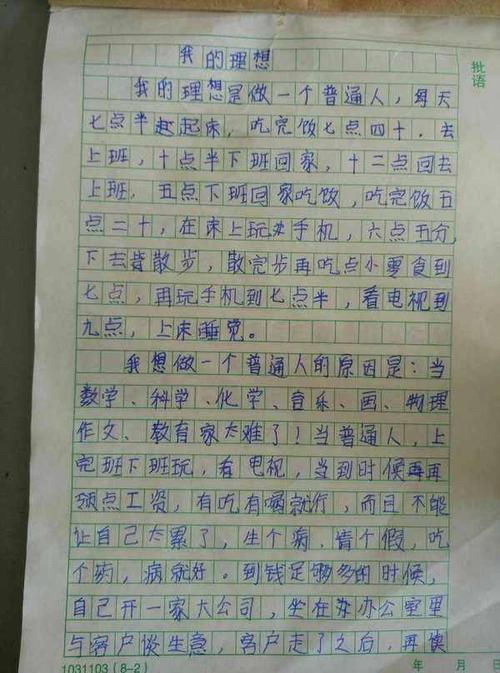 我的理想
批语
我的理想是做一个普通人，每天
七点半起起床，吃完饭七点四十，去
上班，十点半下班回家，十二点回去
上班，五点下班回家吃饭，吃完饭五
点二十，在床上玩手机，六点五分，
下去背散步，散完步再吃点小零食到
七点，再玩手机到七点半，看电视到
九点，上床睡觉。
我想做一个普通人的原因是：当
数学、科学、化学、音乐、画、物理
作文、教育家太难了！当普通人，上
完班下班玩，看电视，当到时候再再
领点工资，有吃有喝就行，而且不能
让自己太累了，生个病，请个假，吃
个药，病就好。到钱足够多的时候，
自己开一家大公司，坐在办办公室里
与客户谈生意，客户走了之后，再
1031103(8-2)
年 月 日